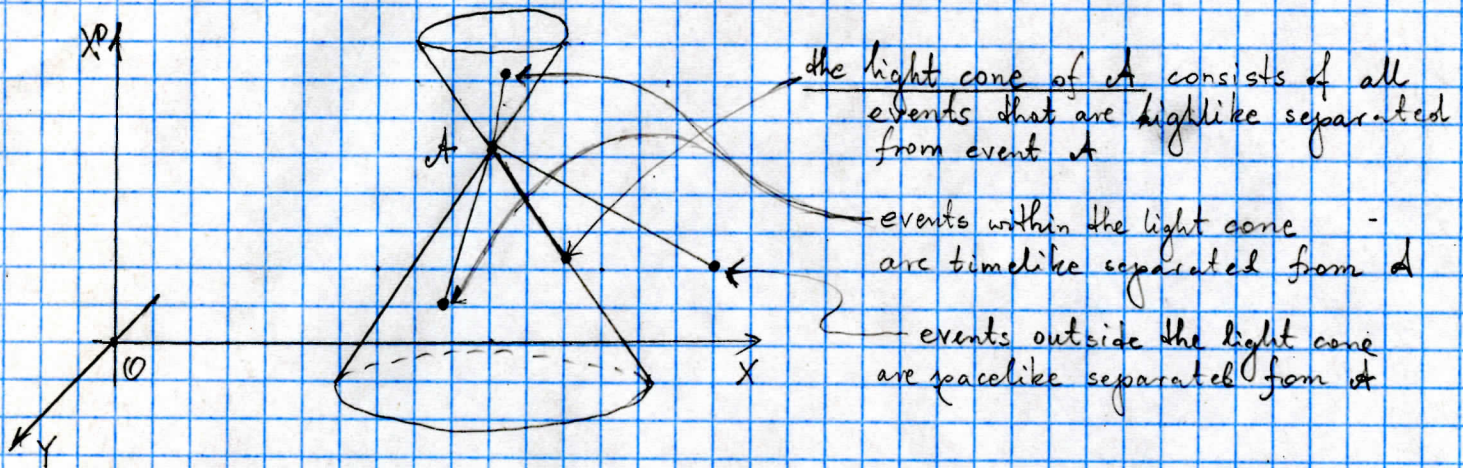 X⁰
A
O
X
Y
the light cone of A consists of all
events that are lighlike separated
from event A
events within the light cone
are timelike separated from A
events outside the light cone
are spacelike separated fom A